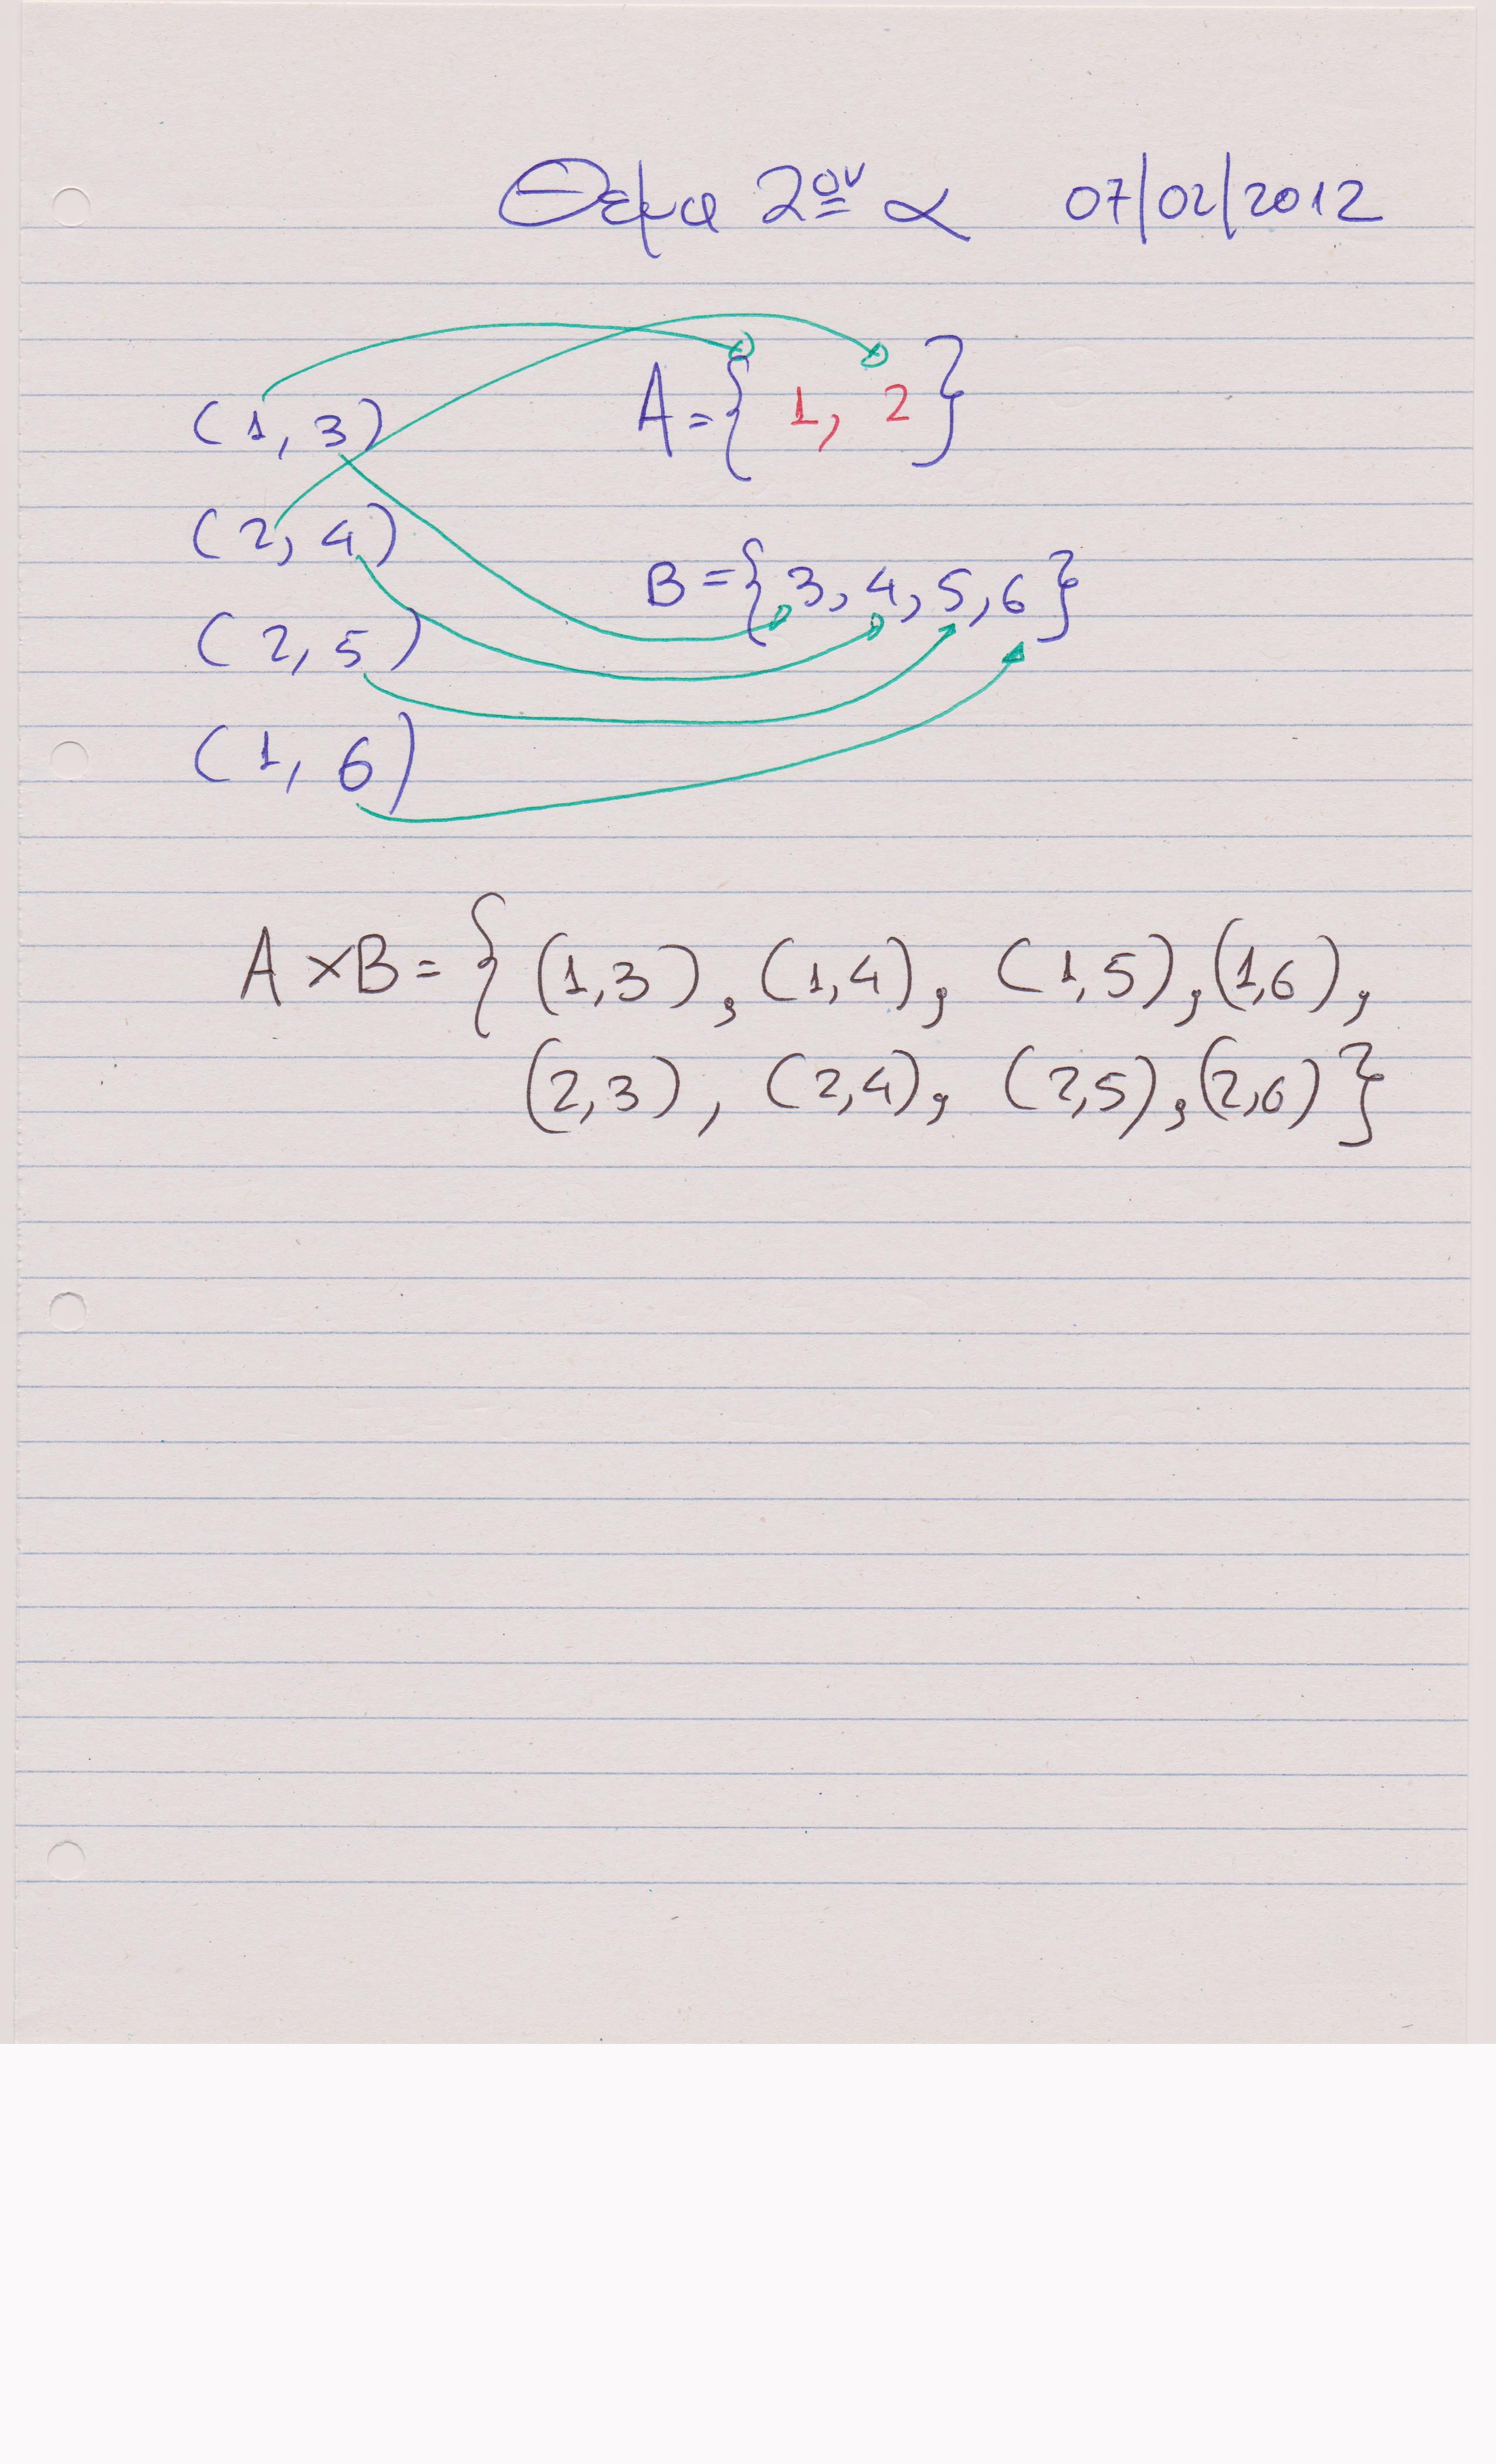 Θεμα 2ον α 07/02/2012
(1, 3) A={ 1, 2 }
(2, 4)
B={3, 4, 5, 6}
(2, 5)
(1, 6)
A×B={ (1,3), (1,4), (1,5), (1,6),
(2,3), (2,4), (2,5), (2,6) }